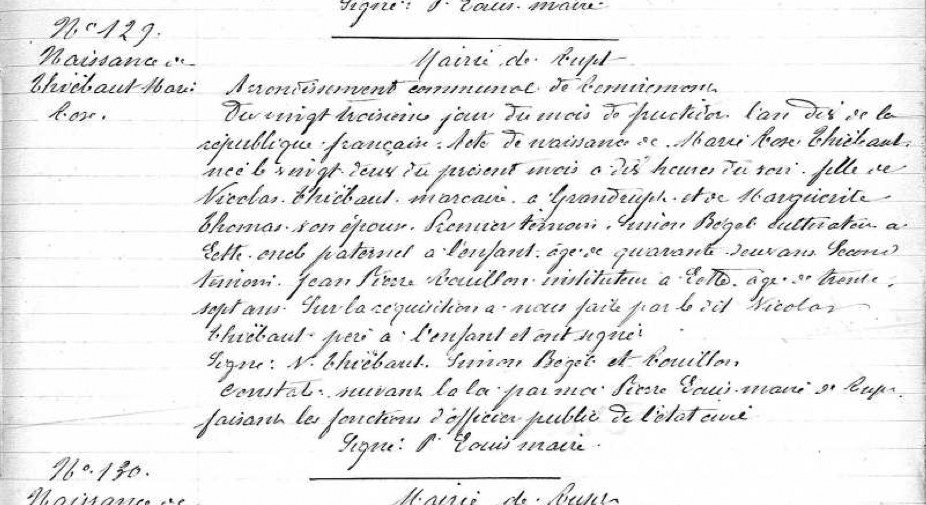 Signé: P. Louis maire
N° 129.
Mairie de Rupt
Naissance de
Thiébaut Marie
Rose.
Arrondissement communal de Remiremont
Du vingt troisieme jour du mois de fructidor l'an dix de la
république française. Acte de naissance de Marie Rose Thiébaut
née le vingt deux du présent mois a dix heures du soir fille de
Nicolas Thiébaut marcaire a Grandrupt et de Marguerite
Thomas son épouse. Premier témoin Simon Begel cultivateur a
Lette oncle paternel a l'enfant, âgé de quarante deux ans Second
témoin Jean Pierre Rouillon instituteur a Lette âgé de trente
sept ans. Sur la réquisition a nous faite par le dit Nicolas
Thiébaut pere a l'enfant et ont signé
Signé: N. Thiébaut. Simon Begel et Rouillon
Constaté suivant la la par moi Pierre Louis maire de Rupt
faisant les fonctions d'officier public de l'état civil
Signé: P. Louis maire.
N° 130.
Mairie de Rupt
Naissance de